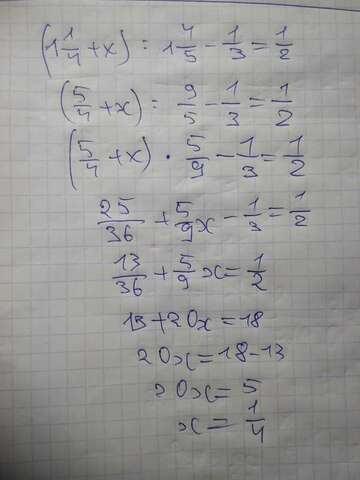 (1 1/4 + x) : 1 4/5 - 1/3 = 1/2
(5/4 + x) : 9/5 - 1/3 = 1/2
(5/4 + x) · 5/9 - 1/3 = 1/2
25/36 + 5/9 x - 1/3 = 1/2
13/36 + 5/9 x = 1/2
13 + 20x = 18
20x = 18 - 13
20x = 5
x = 1/4